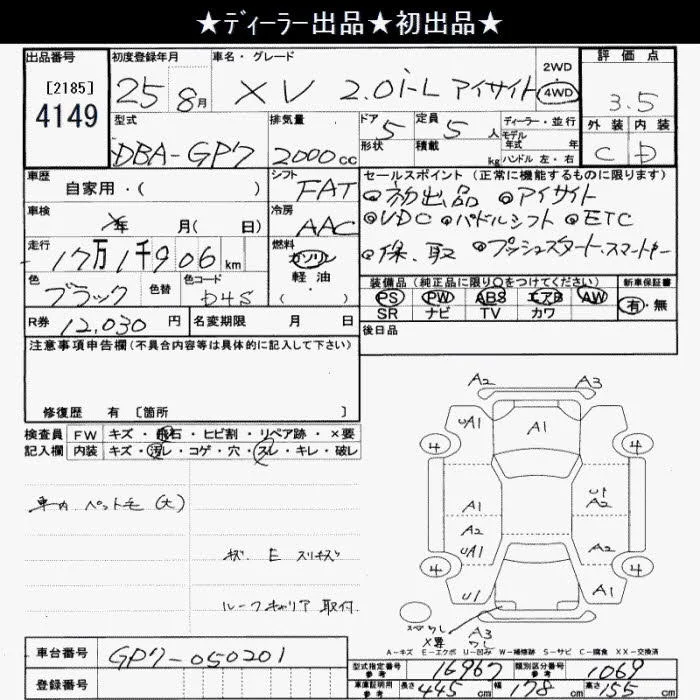 ★ディーラー出品★初出品★
出品番号
[2185]
4149
初度登録年月
25 8月
車名・グレード
XV 2.0i-L アイサイト
2WD
4WD
評価点
3.5
外装 内装
C D
型式
DBA-GP7
排気量
2000cc
ドア 5
形状
定員 5人
積載 kg
ディーラー・並行
モデル
年式 年
ハンドル 左・右
車歴
自家用・( )
シフト
FAT
セールスポイント(正常に機能するものに限ります)
◎初出品 ◎アイサイト
◎VDC ◎パドルシフト ◎ETC
◎保、取 ◎プッシュスタート・スマートキー
車検
年 月( 日)
冷房
AAC
走行
17万1千906km
燃料
ガソリン
・
軽油
( )
色
ブラック
色替
色コード
D4S
装備品(純正品に限り○をつけてください)
PS PW ABS エアB AW
SR ナビ TV カワ
新車保証書
有・無
R券 12,030円
名変期限 月 日
後日品
注意事項申告欄(不具合内容等は具体的に記入して下さい)
修復歴 有 [箇所 ]
検査員
記入欄
FW キズ・飛石・ヒビ割・リペア跡・×要
内装 キズ・汚レ・コゲ・穴・スレ・キレ・破レ
車内 ペット毛(大)
キズ E スリキズ
ルーフキャリア 取付
A2 A3
UA1 A1
4 4
A1 U1
A2 A2
UA1 A2
4 4
U1 A1
A3
ワレ
X要
A-キズ E-エクボ U-凹み W-補修跡 S-サビ C-腐食 XX-交換済
車台番号
GP7-050201
登録番号
型式指定番号
参考
16967
類別区分番号
参考
1069
車庫証明用
参考
長さ 445cm 幅 178cm 高さ 155cm